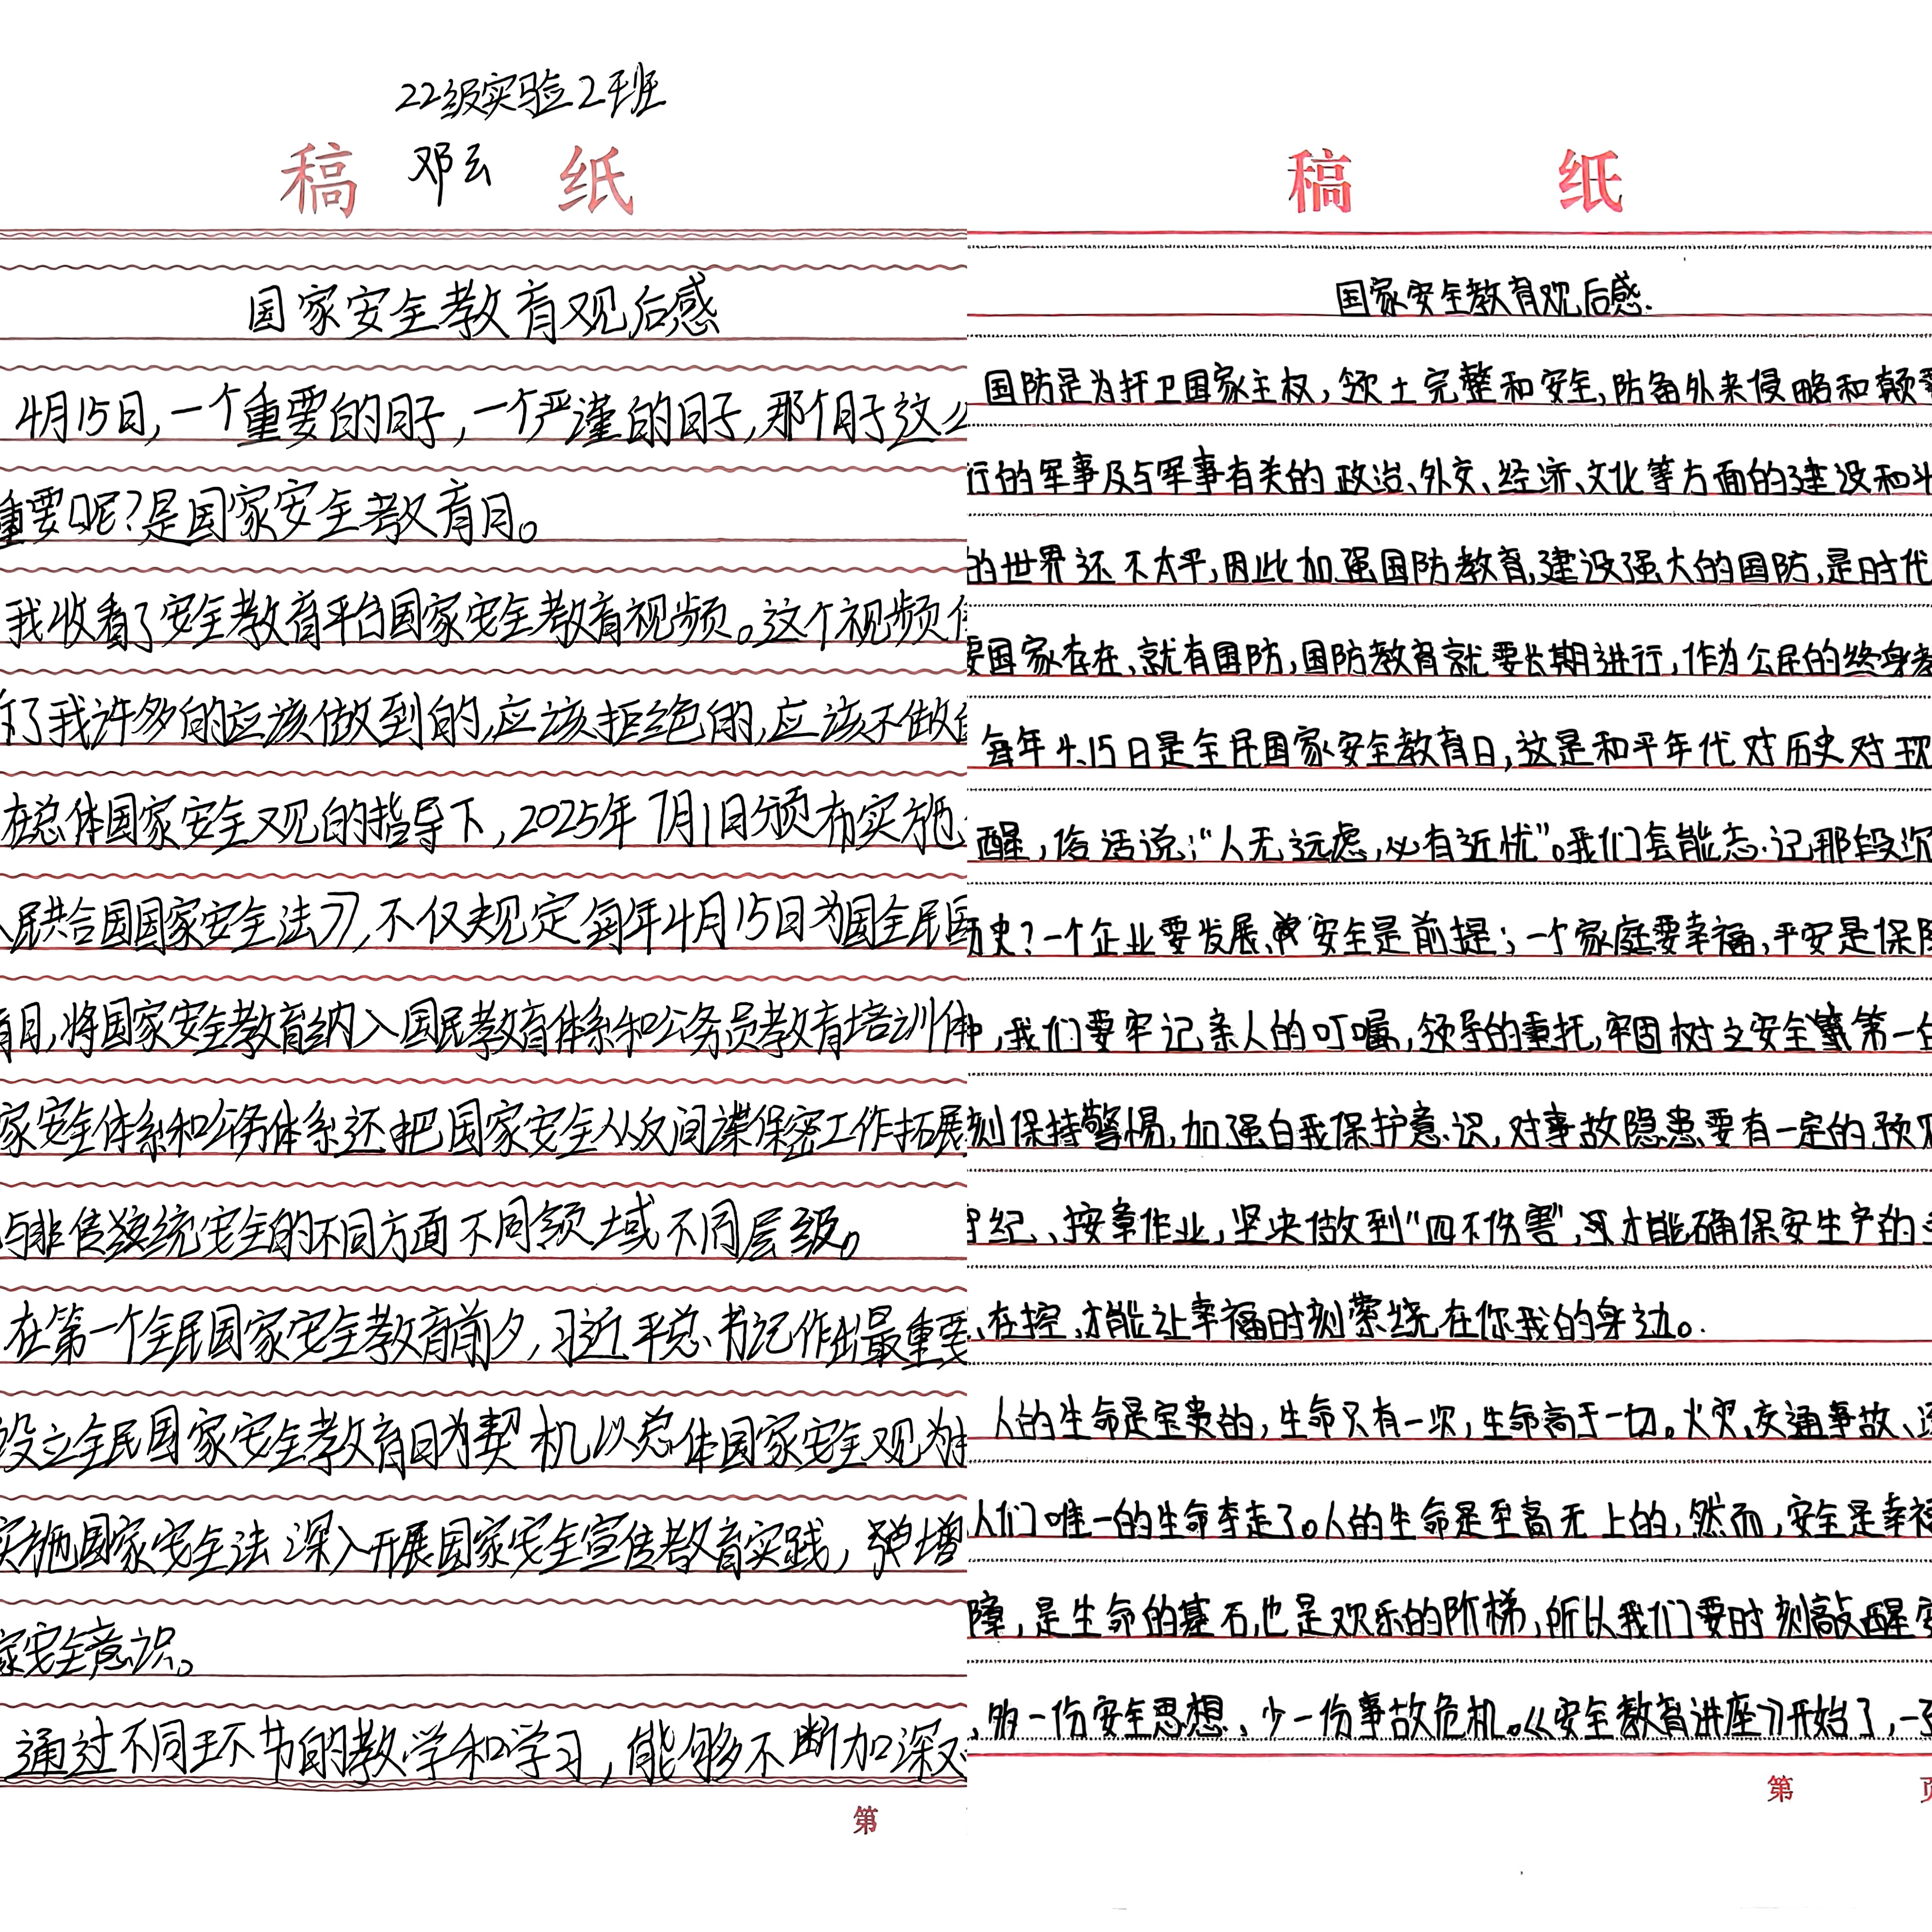 22级实验2班
邓云
稿 纸
国家安全教育观后感
4月15日,一个重要的日子,一个严谨的日子,那个日子这么
重要呢?是国家安全教育日。
我收看了安全教育平台国家安全教育视频。这个视频
了我许多的应该做到的,应该拒绝的,应该不做
在总体国家安全观的指导下,2025年7月1日颁布实施
人民共合国国家安全法》,不仅规定每年4月15日为国全民国
育日,将国家安全教育纳入国民教育体系和公务员教育培训体
家安全体系和公务体系还把国家安全从反间谍保密工作拓展
与非传统安全的不同方面不同领域不同层级。
在第一个全民国家安全教育前夕,习近平总书记作出最重要
设立全民国家安全教育日为契机以总体国家安全观为
实施国家安全法深入开展国家安全宣传教育实践,增
家安全意识。
通过不同环节的教学和学习,能够不断加深对
第
稿 纸
国家安全教育观后感.
国防是为扞卫国家主权,领土完整和安全,防备外来侵略和颠覆
行的军事及与军事有关的政治、外交、经济、文化等方面的建设和斗
的世界还不太平,因此加强国防教育,建设强大的国防,是时代
要国家存在,就有国防,国防教育就要长期进行,作为公民的终身教
每年4.15日是全民国家安全教育日,这是和平年代对历史对现
醒,俗话说:“人无远虑,必有近忧”。我们怎能忘记那段沉
历史?一个企业要发展、安全是前提;一个家庭要幸福,平安是保障
中,我们要牢记亲人的叮嘱,领导的重托,牢固树立安全第一的
刻保持警惕,加强自我保护意识,对事故隐患要有一定的预见
守纪、按章作业,坚决做到“四不伤害”,才能确保安生产的
、在控、才能让幸福时刻萦绕在你我的身边。
人的生命是宝贵的,生命只有一次,生命高于一切。火灾、交通事故、
人们唯一的生命夺走了。人的生命是至高无上的,然而,安全是幸福
障,是生命的基石,也是欢乐的阶梯,所以我们要时刻敲醒安
、多一份安全思想、少一份事故危机。《安全教育讲座》开始了,一
第 页